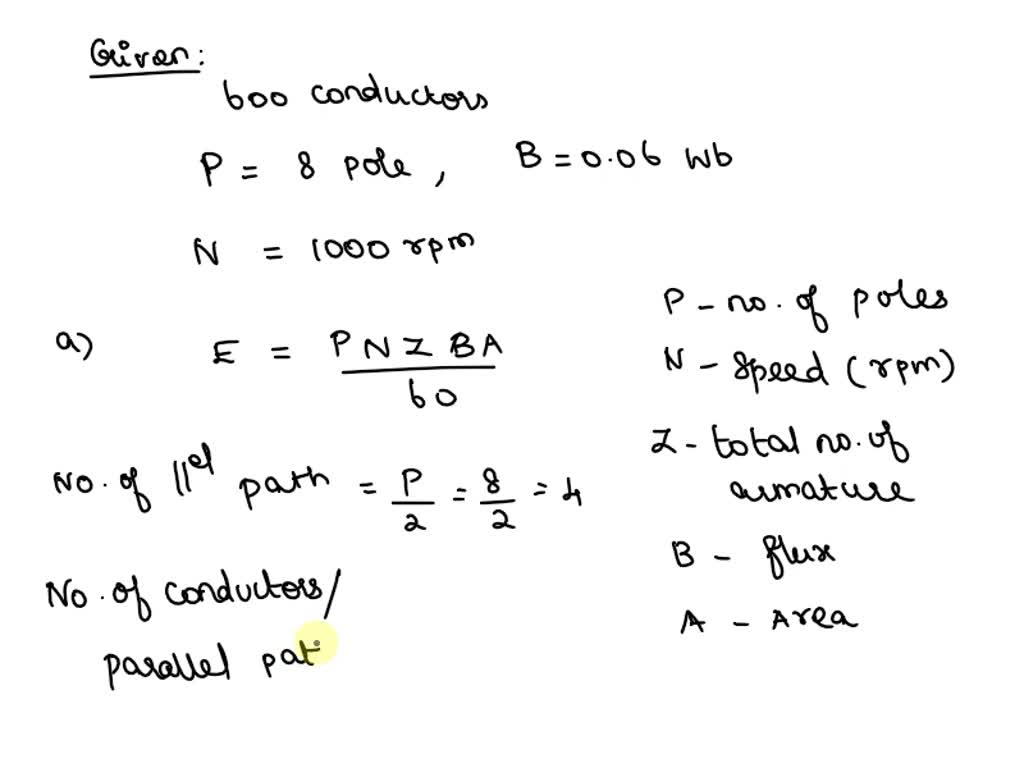 Given:
600 conductors
P = 8 pole, B = 0.06 Wb
N = 1000 rpm
a) E = PNZBA / 60
P - no. of poles
N - speed (rpm)
Z - total no. of
armature
B - flux
A - Area
No. of ||el path = P/2 = 8/2 = 4
No. of conductors/
parallel pat